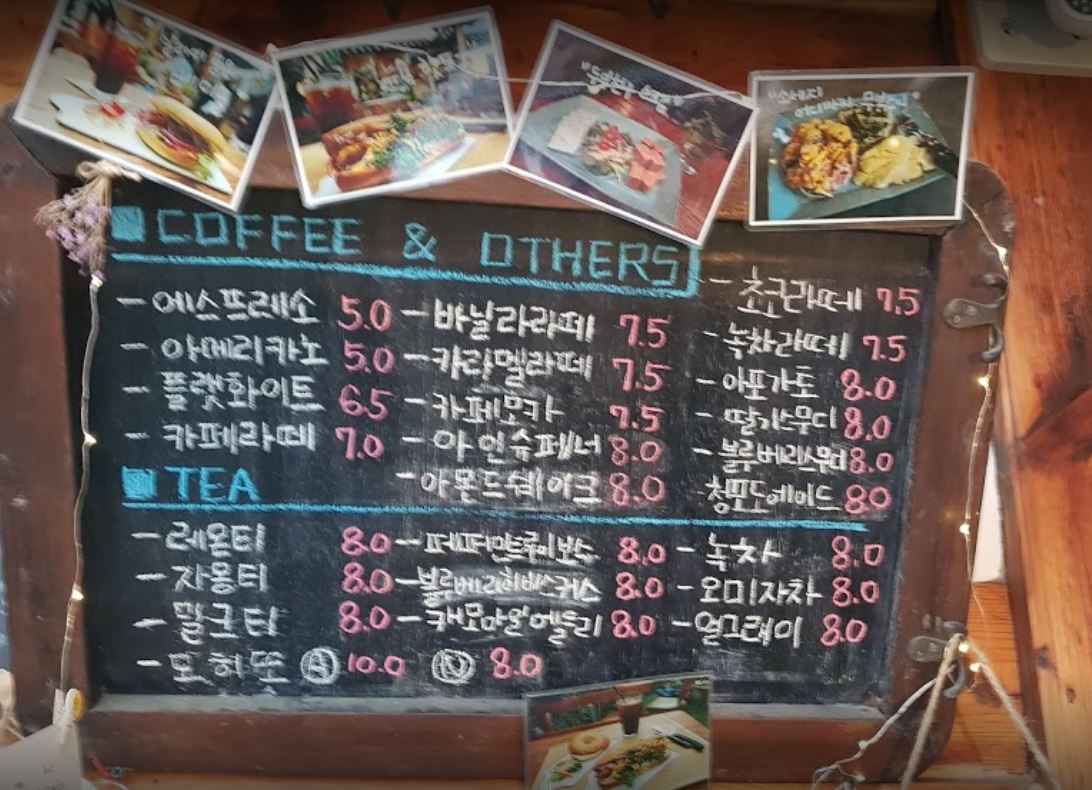 "소세지
■ COFFEE & OTHERS
- 에스프레소 5.0
- 아메리카노 5.0
- 플랫화이트 6.5
- 카페라떼 7.0
- 바닐라라떼 7.5
- 카라멜라떼 7.5
- 카페모카 7.5
- 아인슈페너 8.0
- 아몬드쉐이크 8.0
- 초코라떼 7.5
- 녹차라떼 7.5
- 아포가토 8.0
- 딸기스무디 8.0
- 블루베리스무디 8.0
- 청포도에이드 8.0
■ TEA
- 레몬티 8.0
- 자몽티 8.0
- 밀크티 8.0
- 모히또 Ⓐ 10.0 Ⓝ 8.0
- 페퍼민트루이보스 8.0
- 블루베리히비스커스 8.0
- 캐모마일 8.0
- 녹차 8.0
- 오미자차 8.0
- 얼그레이 8.0